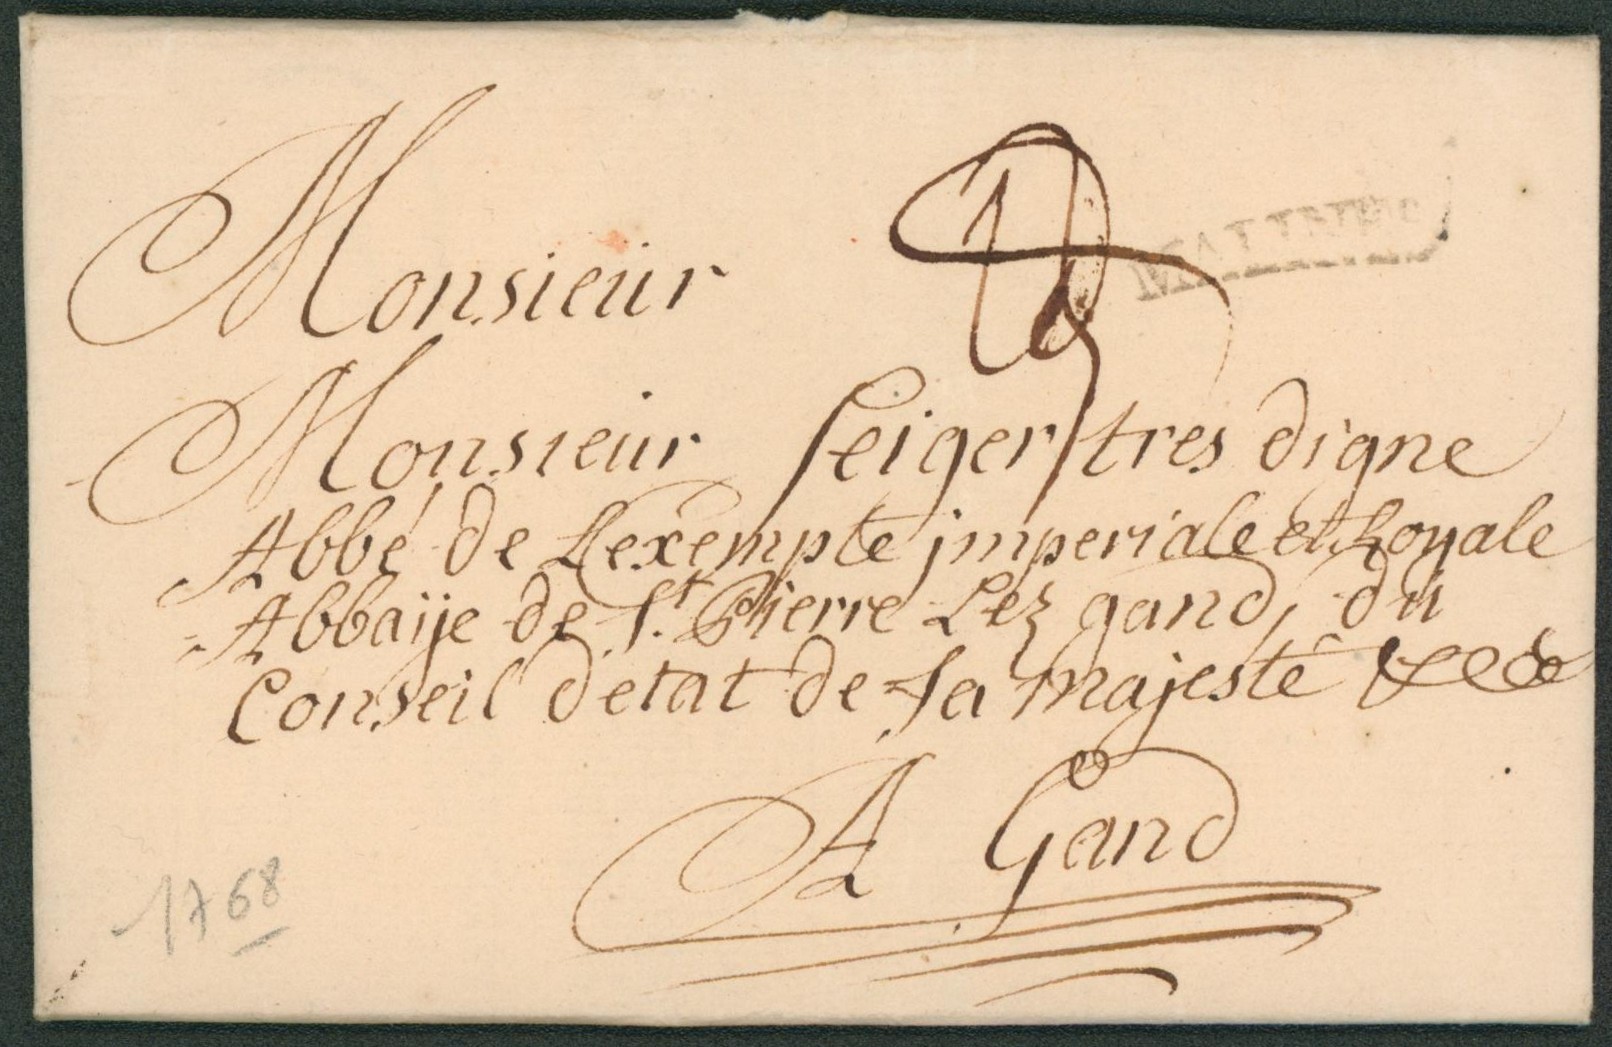 Monsieur
MALINES
Monsieur Seiger tres digne
Abbé de Lexempte jmperiale et Royale
Abbaije de St. Pierre Lez gand, du
Conseil d'etat de Sa majesté &c &c
A Gand
1768